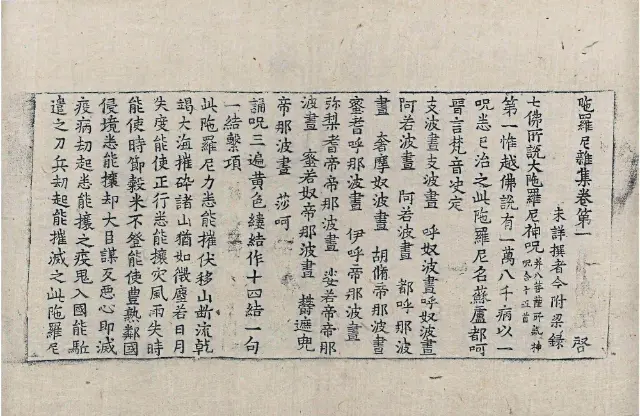 陁羅尼雜集卷第一
未詳撰者今附梁錄 啓
七佛所說大陁羅尼神呪 并八菩薩所說神
呪合十五首
第一惟越佛說有一萬八千病以一
呪悉已治之此陁羅尼名蘇盧都呵
晉言梵音決定
支波晝支波晝 呼奴波晝呼奴波晝
阿若波晝 阿若波晝 都呼那波
晝 奢摩奴波晝 胡脩帝那波晝
蜜耆呼那波晝 伊呼帝那波晝
弥梨耆帝帝那波晝 娑若帝帝那
波晝 蜜若奴帝那波晝 欝遮兜
帝那波晝 莎呵
誦呪三遍黃色縷結作十四結一句
一結繫項
此陁羅尼力悉能摧伏移山斷流乾
竭大海摧碎諸山猶如微塵若日月
失度能使正行悉能攘灾風雨失時
能使時節穀米不登能使豊熟鄰國
侵境悉能攘却大目謀反惡心即滅
疫病劫起悉能攘之疫鬼入國能駈
遣之刀兵劫起能摧滅之此陁羅尼